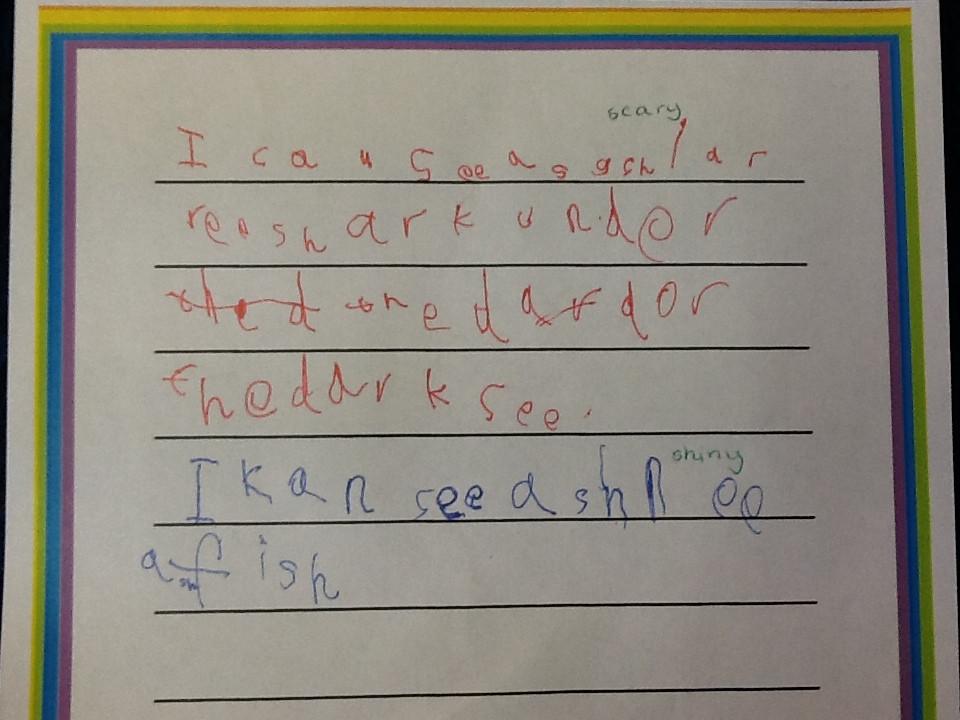 scary
I can see a sgsh/ar
ree shark under
the d the dardor
the dark see.
shiny
I kan see a shn ee
a fish